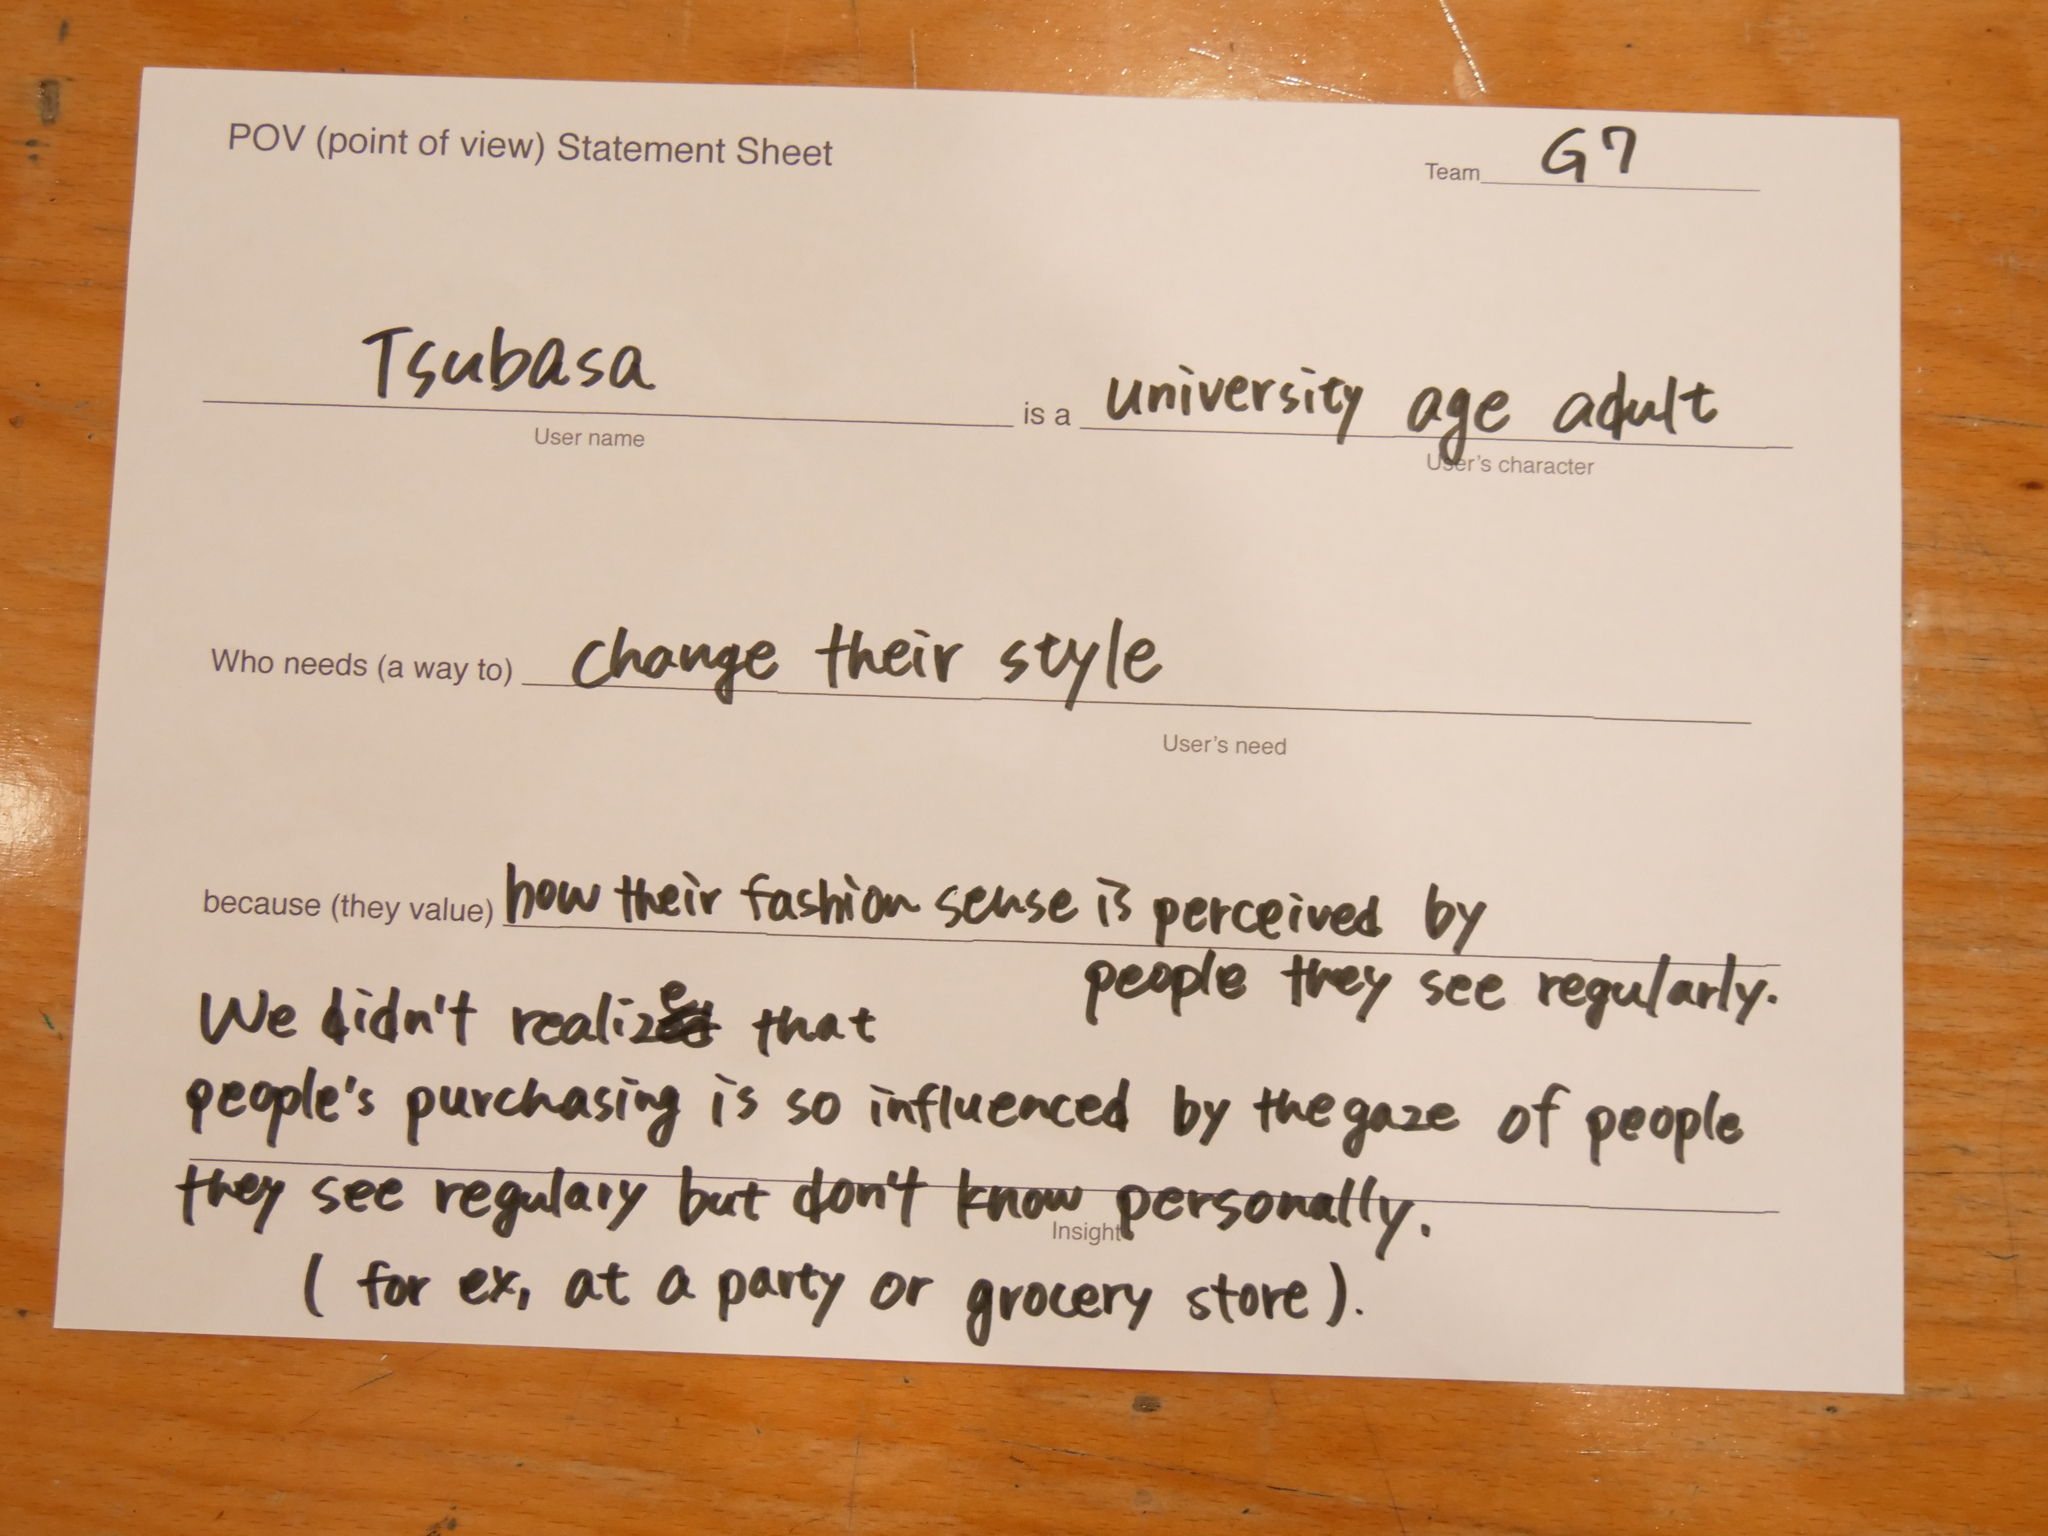 POV (point of view) Statement Sheet
Team G7
Tsubasa is a university age adult
User name User's character
Who needs (a way to) change their style
User's need
because (they value) how their fashion sense is perceived by
people they see regularly.
We didn't realize that
people's purchasing is so influenced by the gaze of people
they see regulary but don't know personally.
Insight
( for ex, at a party or grocery store).